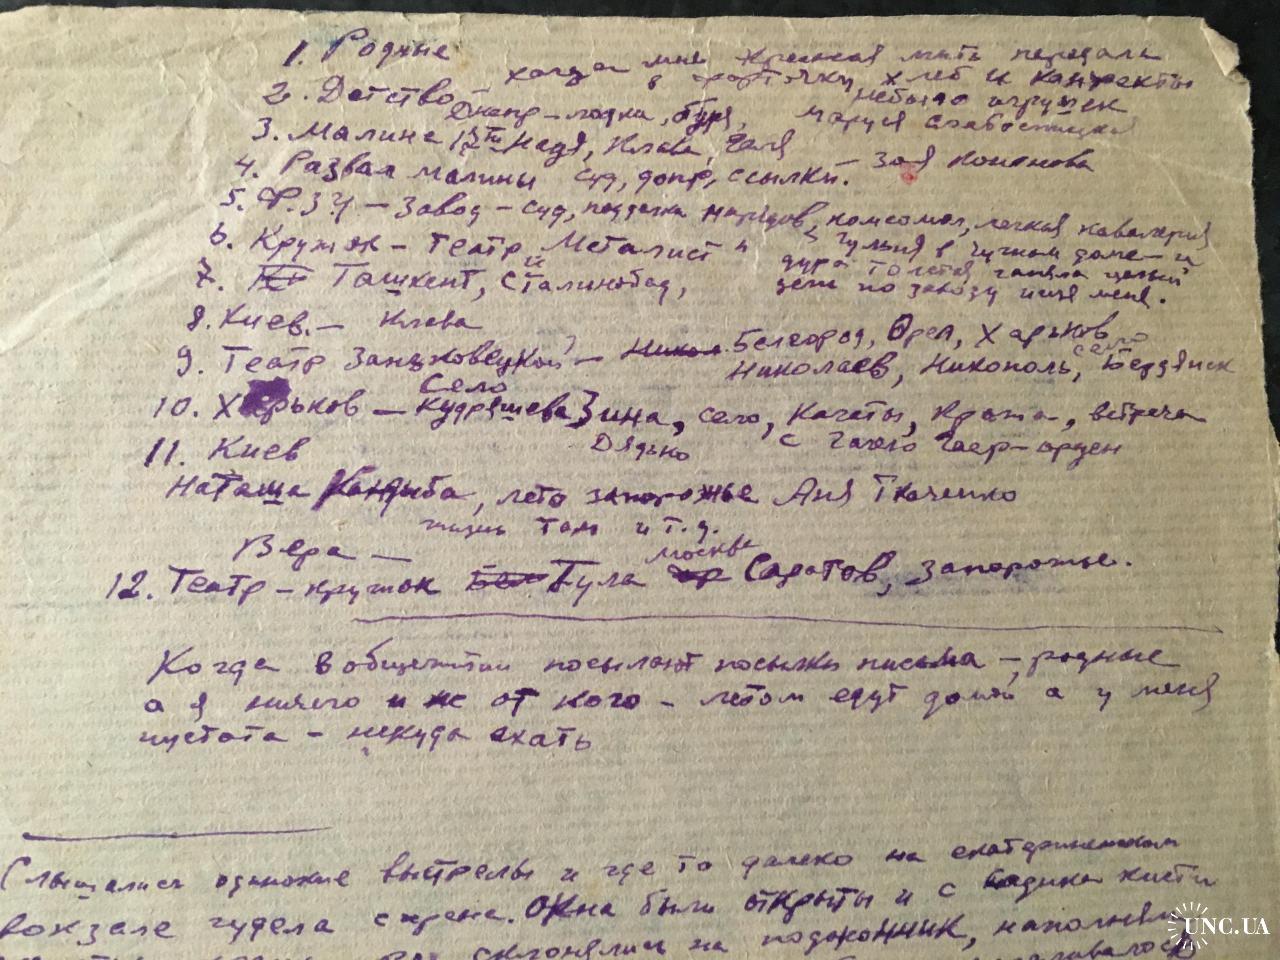 1. Родные
когда мне крестная мать передала
2. Детство в форточку хлеб и конфекты
небыло игрушек
Днепр – лодки, буря, Маруся Слабостицкая
3. Малина 12ти Надя, Клава, Галя
4. Развал малины суд, допр, ссылки. – Зоя Кононова
5. Ф.З.У – Завод – суд, подделка нарядов, комсомол, легкая кавалерия
6. Кружок – Театр Металист "
дура Толстая гоняла целый
7. Ташкент, Сталинобад,
день по заводу меня.
8. Киев. – Клава
9. Театр Заньковецкой – Белгород, Орел, Харьков
село
Николаев, Никополь, Бердянск
Село
10. Харьков – Кудряшева Зина, село, Качеты, Кража, встреча
Дядько с орден
11. Киев
Наташа Кандыба, лето запорожье Аня Ткаченко
жизнь там и т.д.
Вера –
москва
12. Театр – кружок Тула Саратов, Запорожье.
Когда в общежитии посылают посылки письма – родные
а я ничего и не от кого – летом едут домой а у меня
пустота – некуда ехать
Слышались одинокие выстрелы и где то далеко на екатерининском
вокзале гудела сирена. Окна были открыты и с кисти
склонялись на подоконник, наполняя
UNC.UA